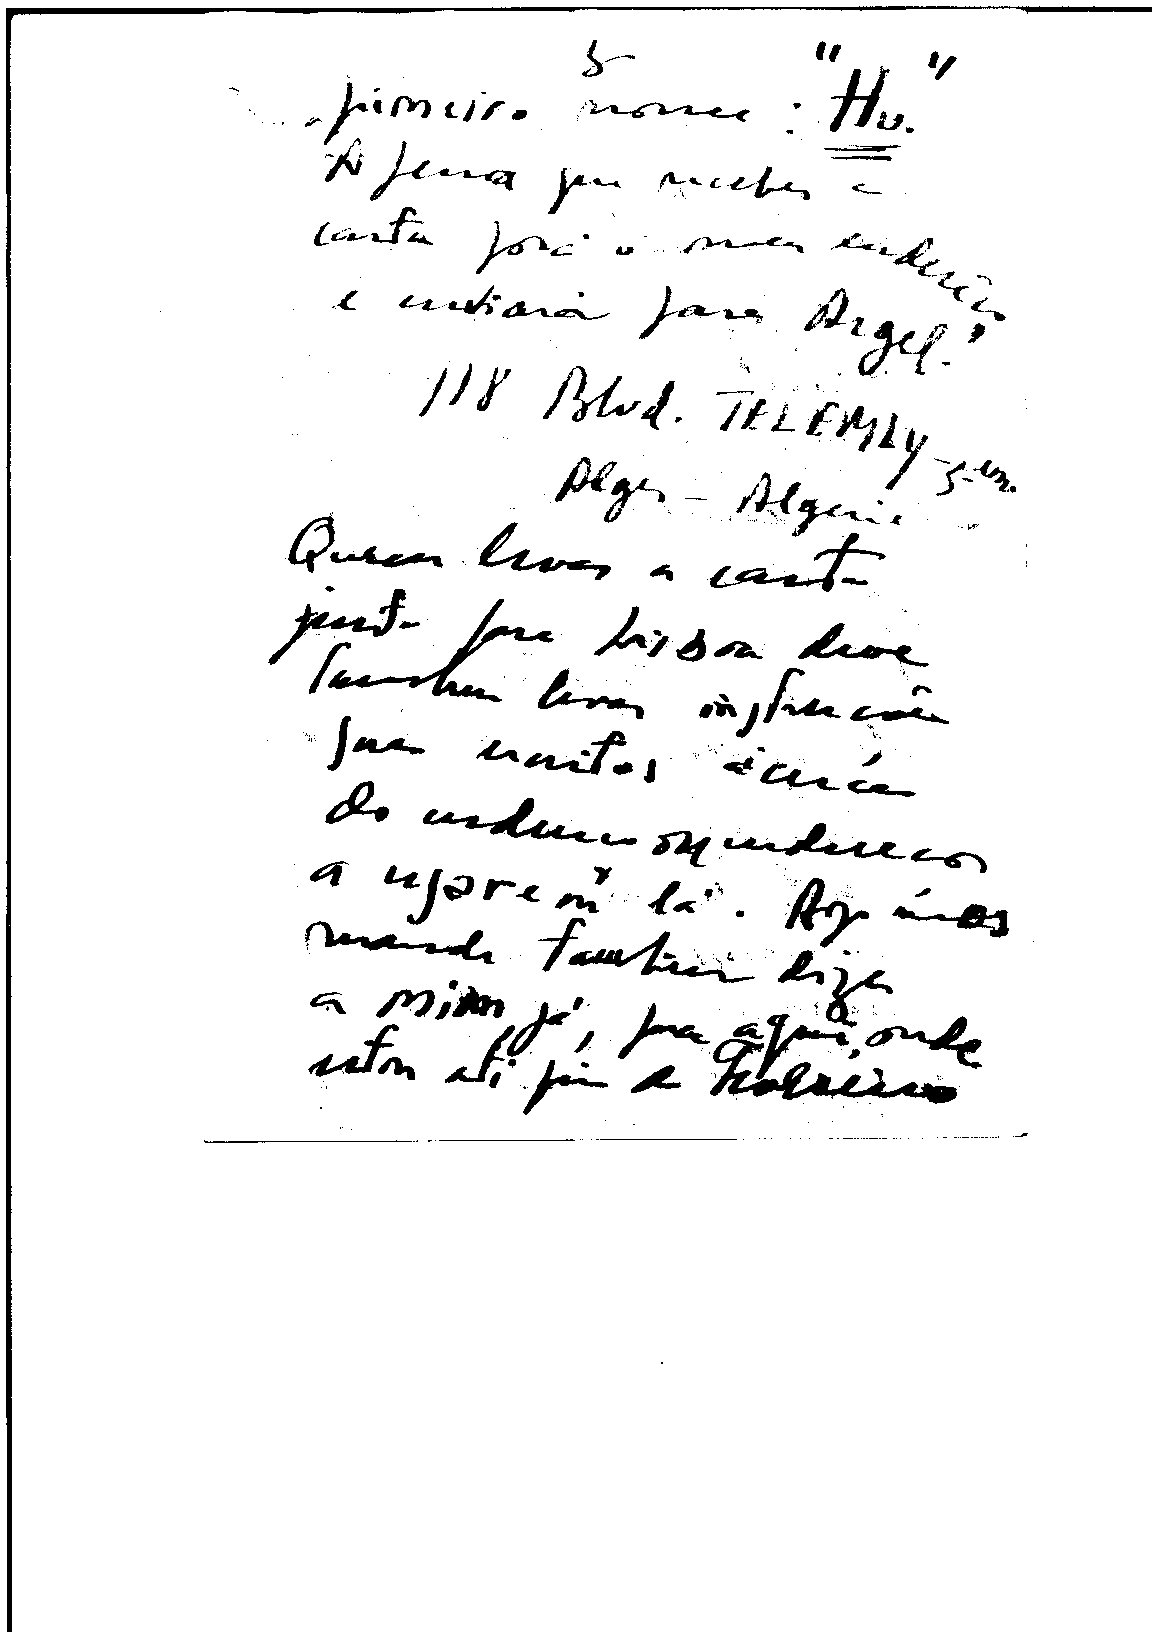 5
primeiro nome: "Hu."
A pessoa que receber a
carta porá o meu endereço
e enviará para Argel."
118 Blvd. TELEMLY - 5-
Alger - Algerie
Quem levar a carta
junta para Lisboa deve
também levar instruções
para
do endereço ou endereços
a usarem lá.
mande também dizer
a mim já, para aqui, onde
estou até fim de Fevereiro